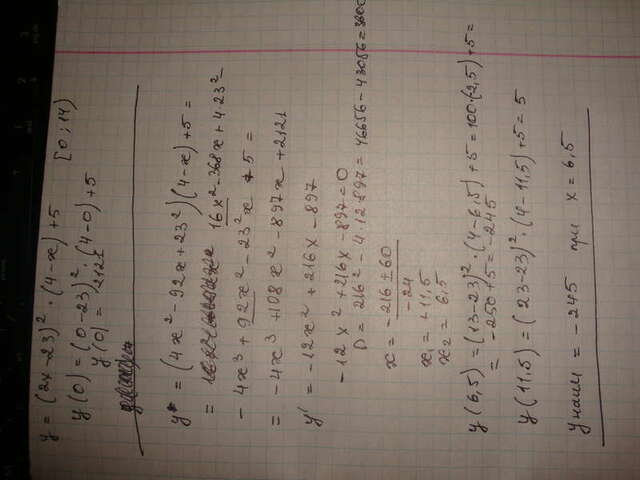 y = (2x-23)² · (4-x) + 5   [0; 14)
y(0) = (0-23)² · (4-0) + 5
y(0) = 2121
y = (4x² - 92x + 23²)(4-x) + 5 =
= 16x² - 368x + 4·23² -
- 4x³ + 92x² - 23²x + 5 =
= -4x³ + 108x² - 897x + 2121
y' = -12x² + 216x - 897
-12x² + 216x - 897 = 0
D = 216² - 4·12·897 = 46656 - 43056 = 3600
x = -216 ± 60
-24
x₁ = +11,5
x₂ = 6,5
y(6,5) = (13-23)² · (4-6,5) + 5 = 100·(-2,5) + 5 =
= -250 + 5 = -245
y(11,5) = (23-23)² · (4-11,5) + 5 = 5
y наим = -245 при x = 6,5